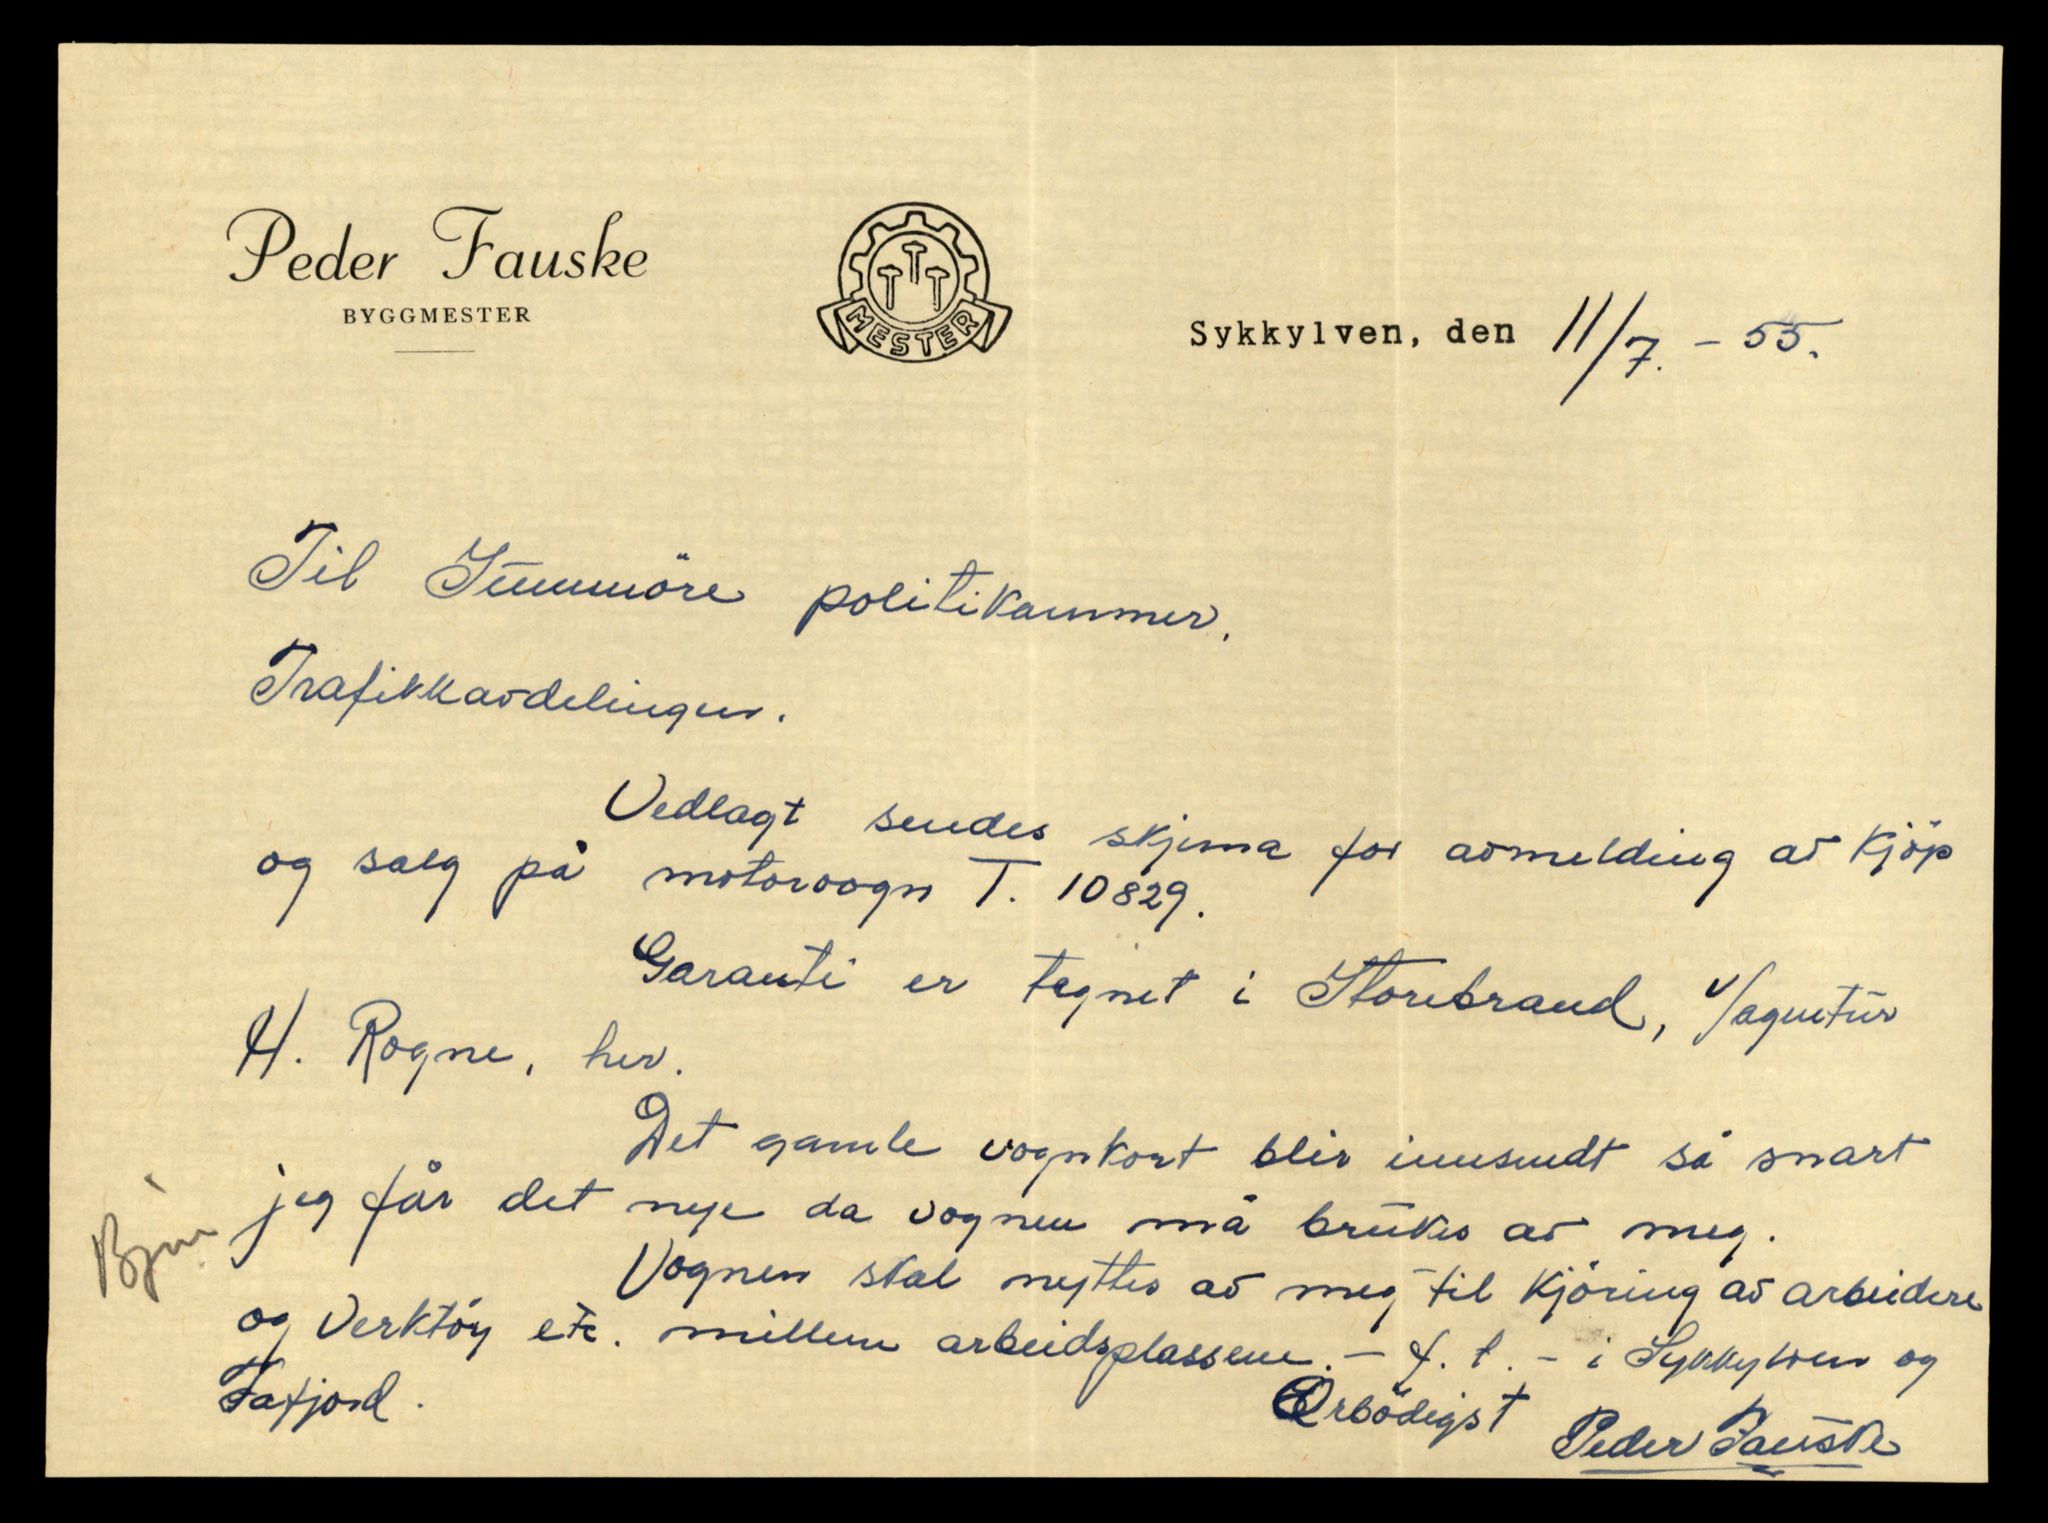 Peder Fauske
BYGGMESTER
MESTER
Sykkylven, den 11/7. - 55.
Til Sunnmöre politikammer.
Trafikkavdelingen.
Vedlagt sendes skjema for avmelding av kjöp
og salg på motorvogn T. 10829.
Garanti er tegnet i Storebrand, v/agentur
H. Rogne, her.
Det gamle vognkort blir innsendt så snart
jeg får det nye da vognen må brukes av meg.
Vognen skal nyttes av meg til kjöring av arbeidere
og verktöy etc. mellem arbeidsplassene. - f. t. - i Sykkylven og
Tafjord.
Erbödigst
Peder Fauske